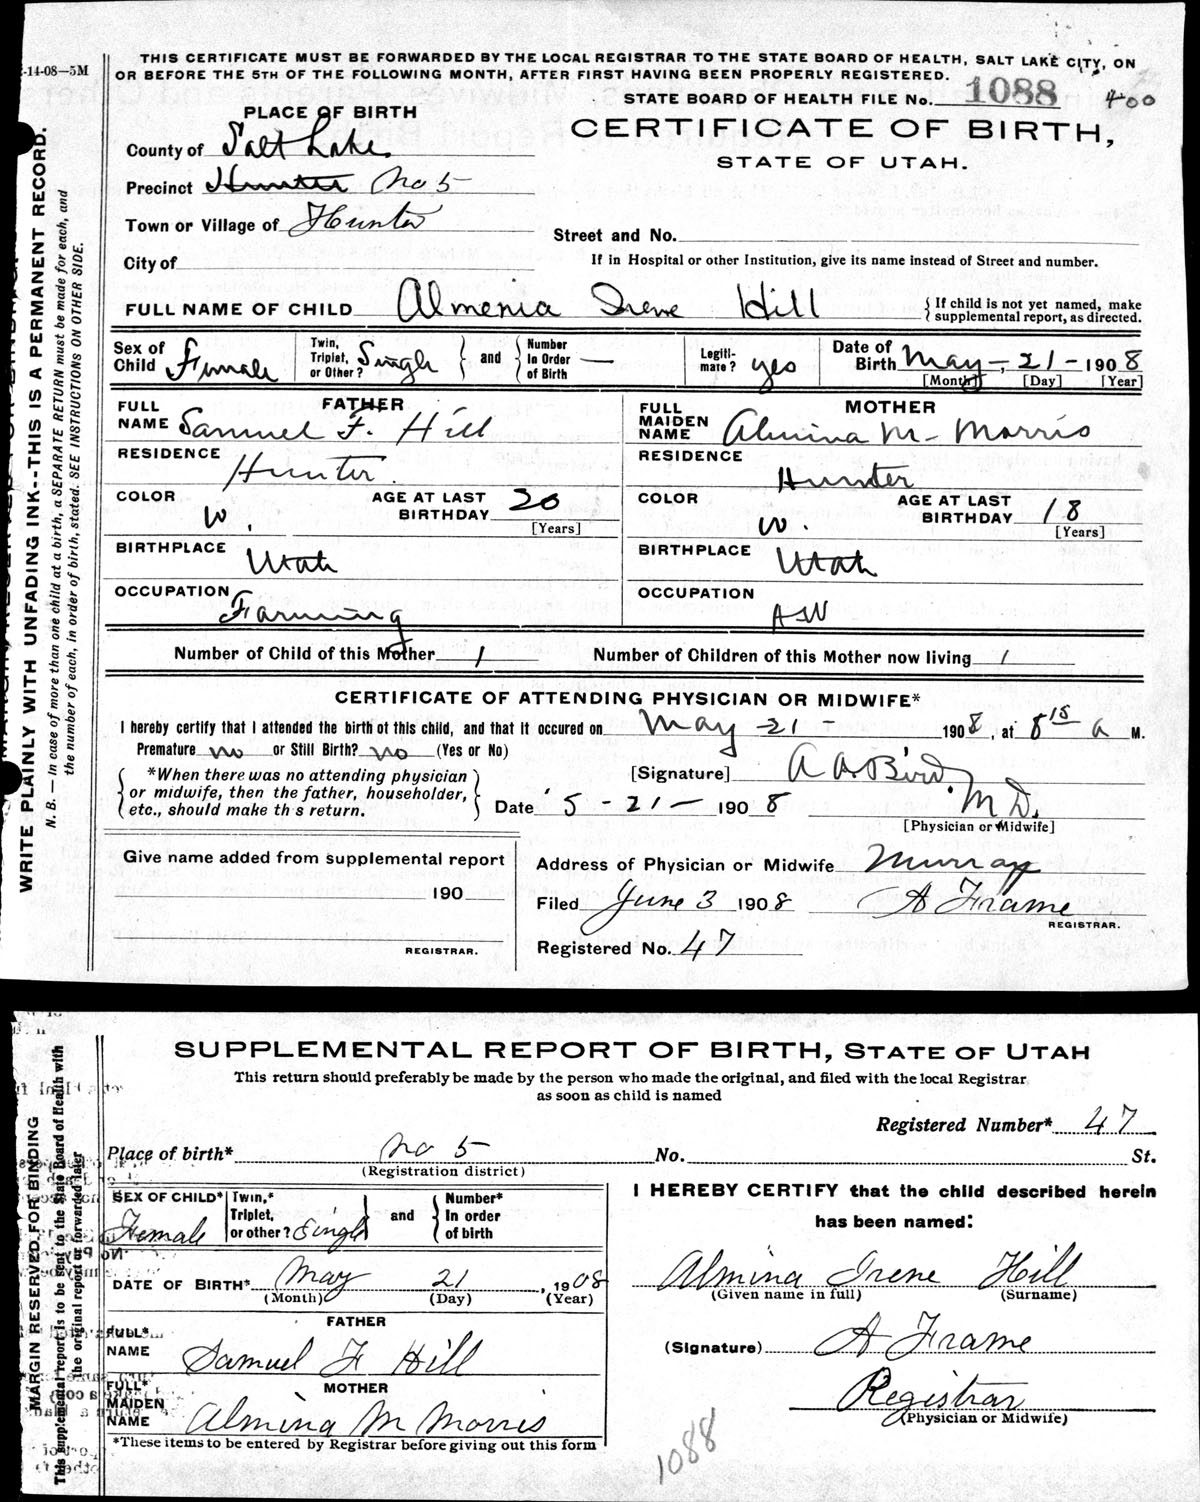 THIS CERTIFICATE MUST BE FORWARDED BY THE LOCAL REGISTRAR TO THE STATE BOARD OF HEALTH, SALT LAKE CITY, ON
-14-08—5M
OR BEFORE THE 5TH OF THE FOLLOWING MONTH, AFTER FIRST HAVING BEEN PROPERLY REGISTERED.
STATE BOARD OF HEALTH FILE No. 1088 400
PLACE OF BIRTH
CERTIFICATE OF BIRTH,
STATE OF UTAH.
County of Salt Lake
Precinct Hunter No 5
Town or Village of Hunter
Street and No.
City of
If in Hospital or other Institution, give its name instead of Street and number.
FULL NAME OF CHILD Almenia Irene Hill
If child is not yet named, make
supplemental report, as directed.
Sex of Child Female
Twin, Triplet, or Other? Single
and
Number In Order of Birth —
Legiti- mate? yes
Date of Birth May - 21 - 1908
[Month] [Day] [Year]
FATHER
FULL NAME Samuel F. Hill
RESIDENCE Hunter
COLOR W.
AGE AT LAST BIRTHDAY 20
[Years]
BIRTHPLACE Utah
OCCUPATION Farming
MOTHER
FULL MAIDEN NAME Almina M. Morris
RESIDENCE Hunter
COLOR W.
AGE AT LAST BIRTHDAY 18
[Years]
BIRTHPLACE Utah
OCCUPATION
Number of Child of this Mother 1
Number of Children of this Mother now living 1
CERTIFICATE OF ATTENDING PHYSICIAN OR MIDWIFE*
I hereby certify that I attended the birth of this child, and that it occured on May - 21 - 1908, at 8 15 a M.
Premature no or Still Birth? no (Yes or No)
*When there was no attending physician
or midwife, then the father, householder,
etc., should make th s return.
[Signature] A A Bird.
Date 5 - 21 - 1908 M D.
[Physician or Midwife]
Give name added from supplemental report
190
REGISTRAR.
Address of Physician or Midwife Murray
Filed June 3 1908 A Frame
REGISTRAR.
Registered No. 47
WRITE PLAINLY WITH UNFADING INK--THIS IS A PERMANENT RECORD.
N. B. — In case of more than one child at a birth, a SEPARATE RETURN must be made for each, and
the number of each, in order of birth, stated. SEE INSTRUCTIONS ON OTHER SIDE.
SUPPLEMENTAL REPORT OF BIRTH, STATE OF UTAH
This return should preferably be made by the person who made the original, and filed with the local Registrar
as soon as child is named
Registered Number* 47
Place of birth* No 5 No. St.
(Registration district)
SEX OF CHILD* Female
Twin,* Triplet, or other? Single
and
Number* In order of birth
DATE OF BIRTH* May 21, 1908
(Month) (Day) (Year)
FATHER
FULL* NAME Samuel F Hill
MOTHER
FULL* MAIDEN NAME Almina M Morris
*These items to be entered by Registrar before giving out this form
I HEREBY CERTIFY that the child described herein
has been named:
Almina Irene Hill
(Given name in full) (Surname)
(Signature) A Frame
Registrar
(Physician or Midwife)
1088
MARGIN RESERVED FOR BINDING
This supplemental report is to be sent to the State Board of Health with
the original report or forwarded later